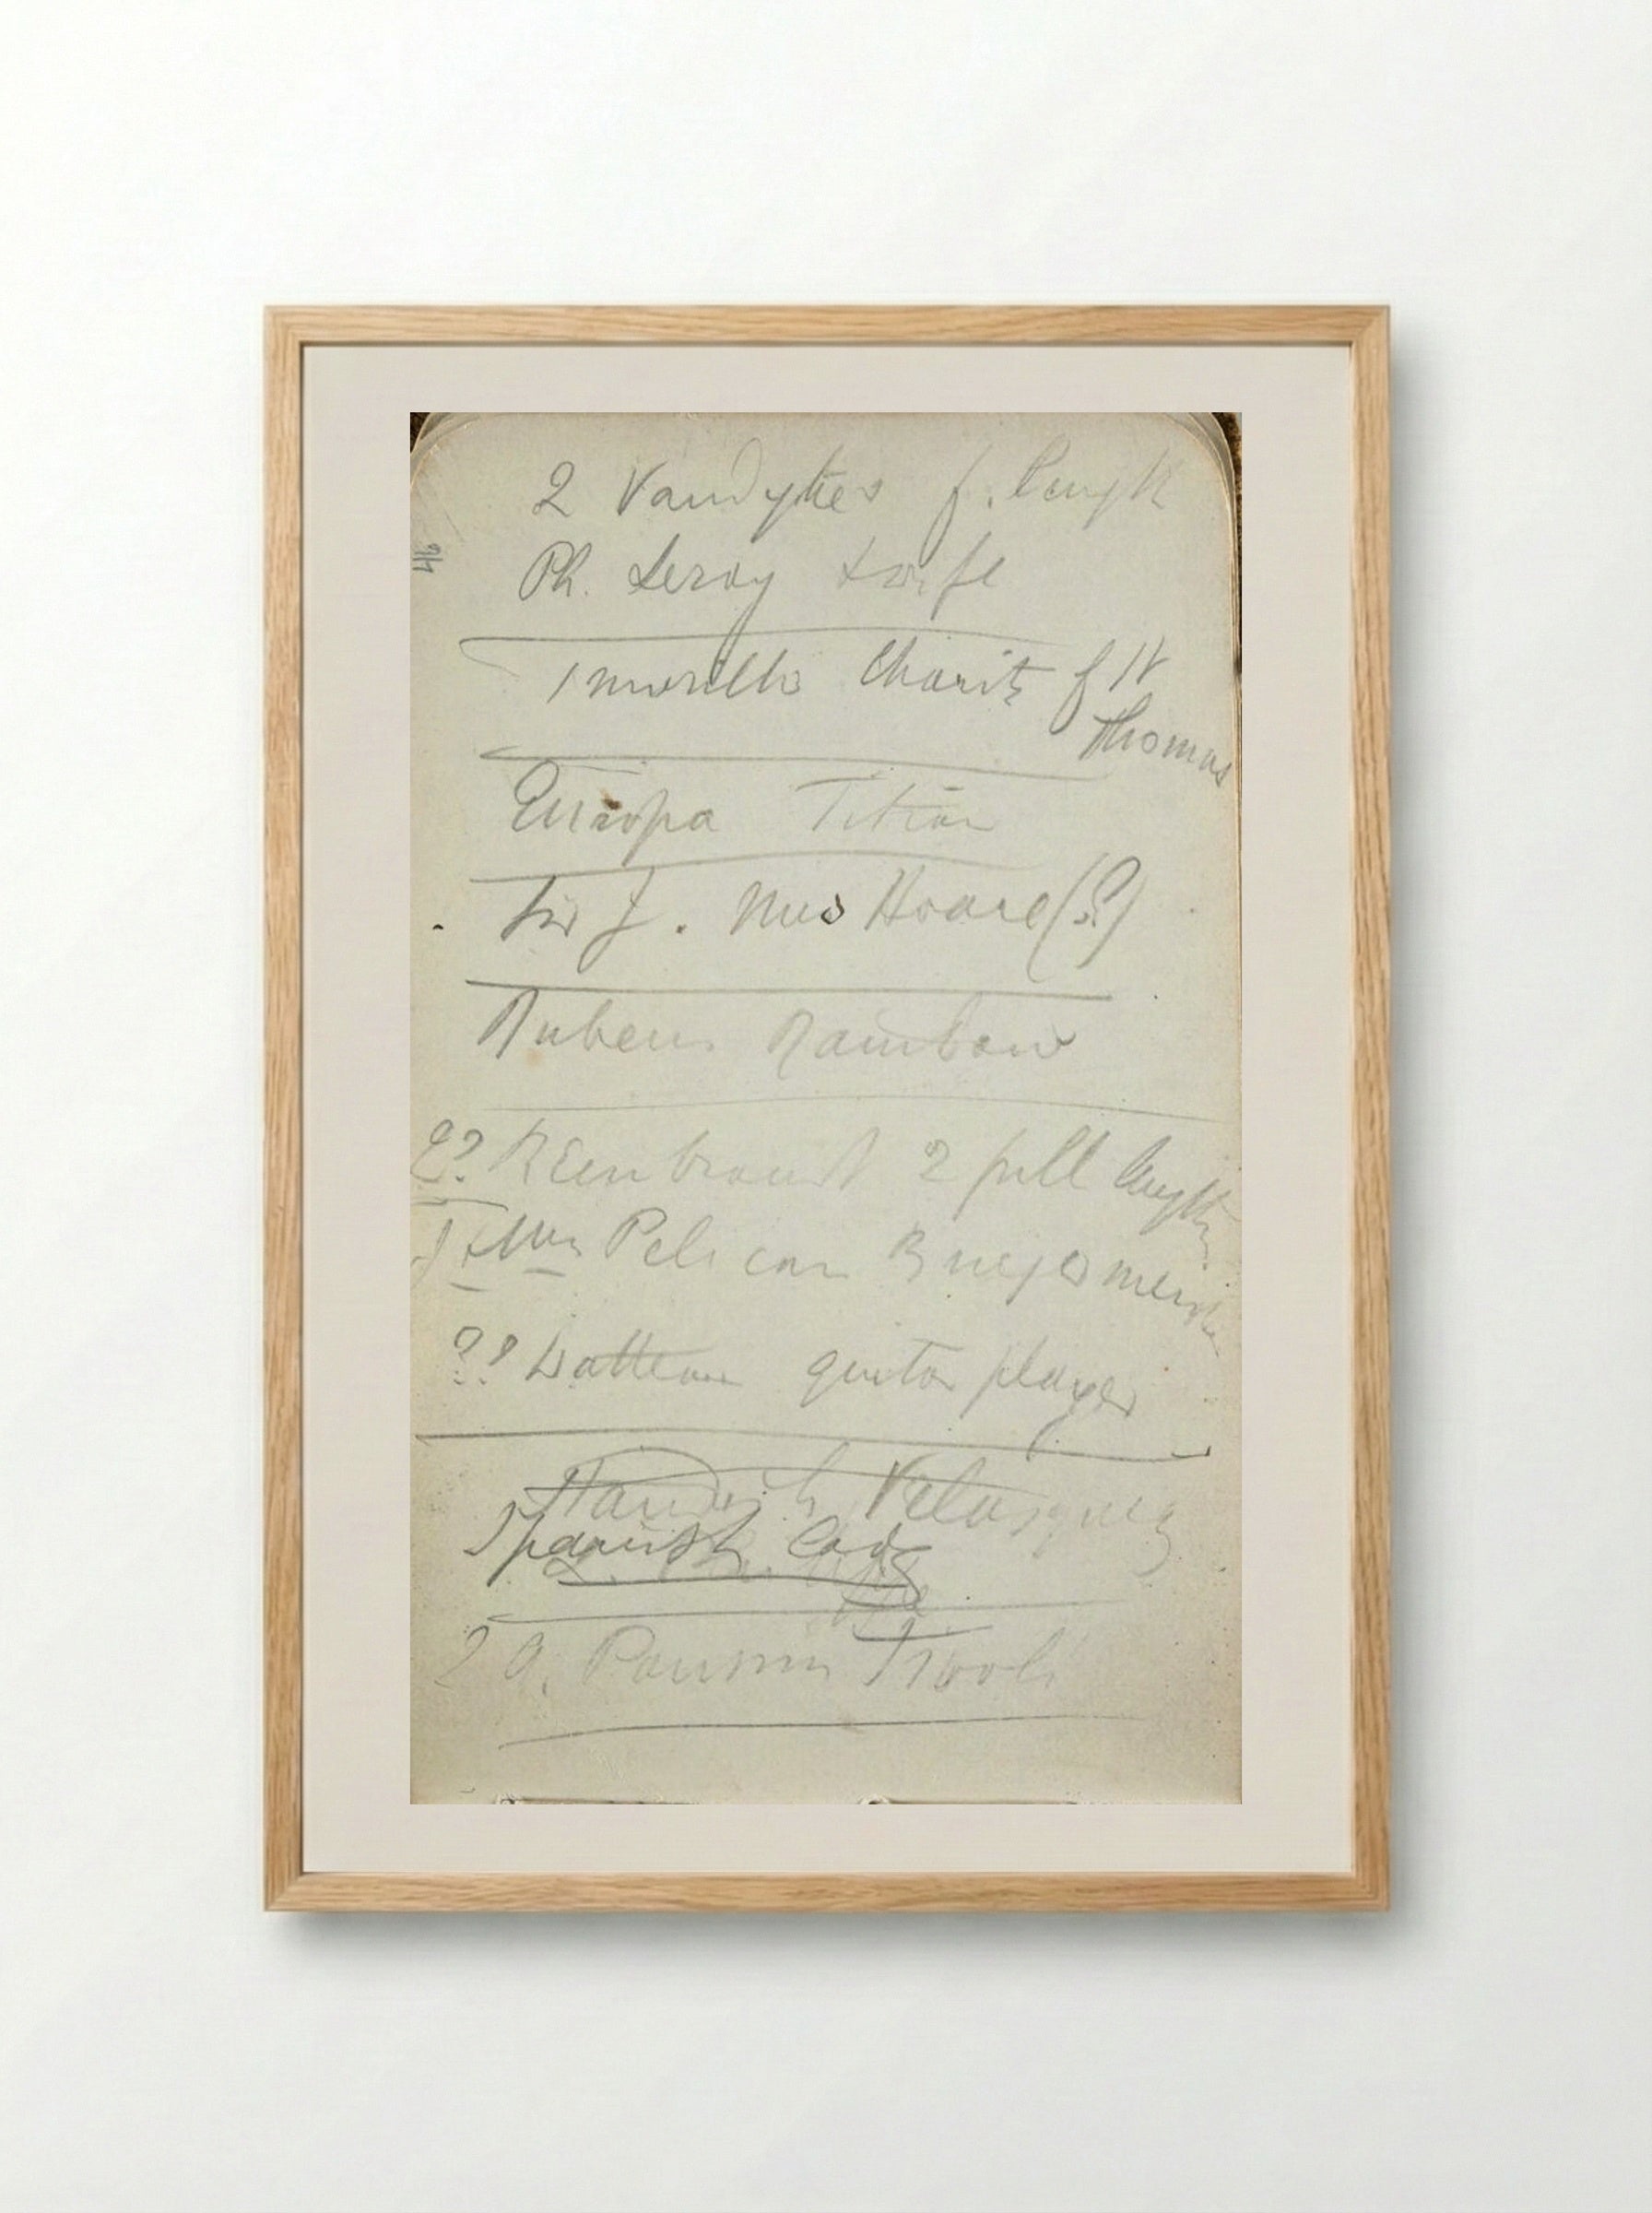 2 Vandykes f. length
Ph. Leroy & wife
1 murillo Charity of St
Thomas
Europa Titian
Sir J. Mrs Hoare (?)
Rubens Rainbow
?? Rembrandt 2 full lengths
& Mrs Pelican Burgomeister
?? Watteau guitar player
Standish Velasquez
Spanish Lady
2 G. Poussin Tivoli